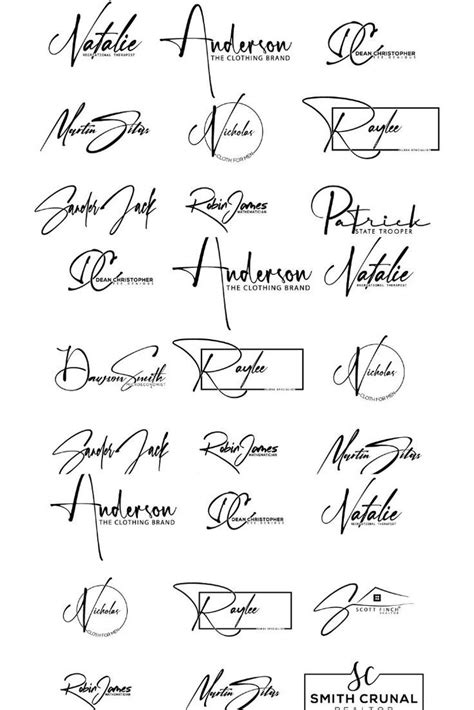 Natalie
RECREATIONAL THERAPIST
Anderson
THE CLOTHING BRAND
DC
DEAN CHRISTOPHER
Martin Silas
Nicholas
CLOTH FOR MEN
Raylee
Sander Jack
Robin James
MATHEMATICIAN
Patrick
STATE TROOPER
DC
DEAN CHRISTOPHER
Anderson
THE CLOTHING BRAND
Natalie
RECREATIONAL THERAPIST
Dawson Smith
Raylee
Nicholas
CLOTH FOR MEN
Sander Jack
Robin James
MATHEMATICIAN
Martin Silas
Anderson
THE CLOTHING BRAND
DC
DEAN CHRISTOPHER
Natalie
RECREATIONAL THERAPIST
Nicholas
CLOTH FOR MEN
Raylee
S
SCOTT FINCH
REALTOR
Robin James
MATHEMATICIAN
Martin Silas
SC
SMITH CRUNAL
REALTOR